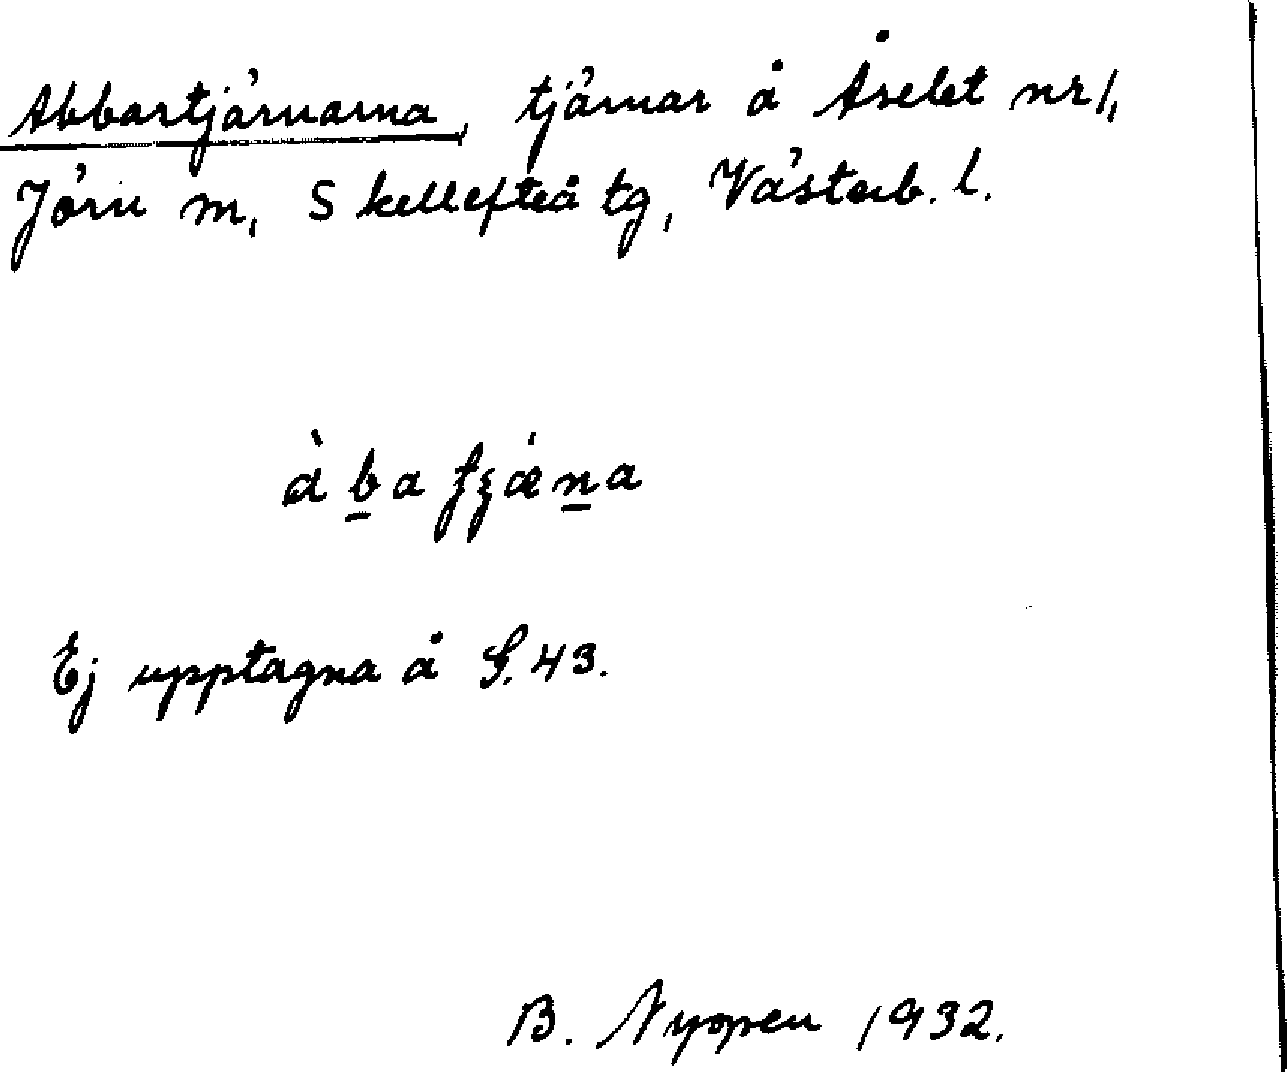 Abbartjärnarna, tjärnar å Åselet nr 1,
Jörn sn, Skellefteå tg, Västerb. l.
Ej upptagna å S. 43.
B. Nyopen 1932.